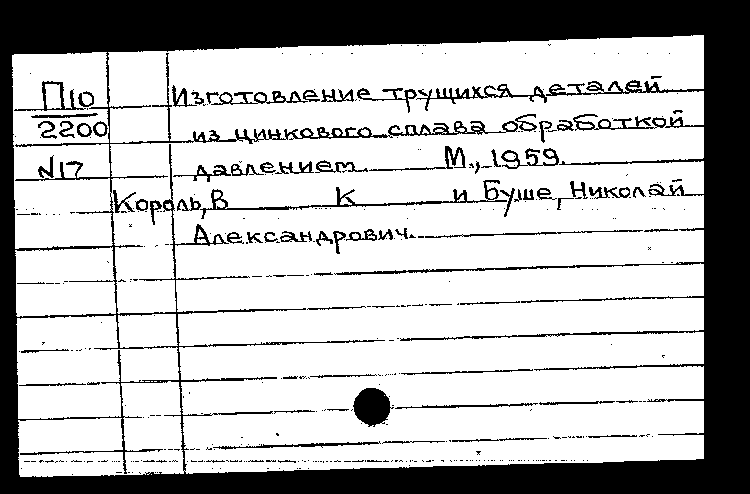 П10 Изготовление трущихся деталей
2200 из цинкового сплава обработкой
N17 давлением. М., 1959.
Король, В К и Буше, Николай
Александрович.